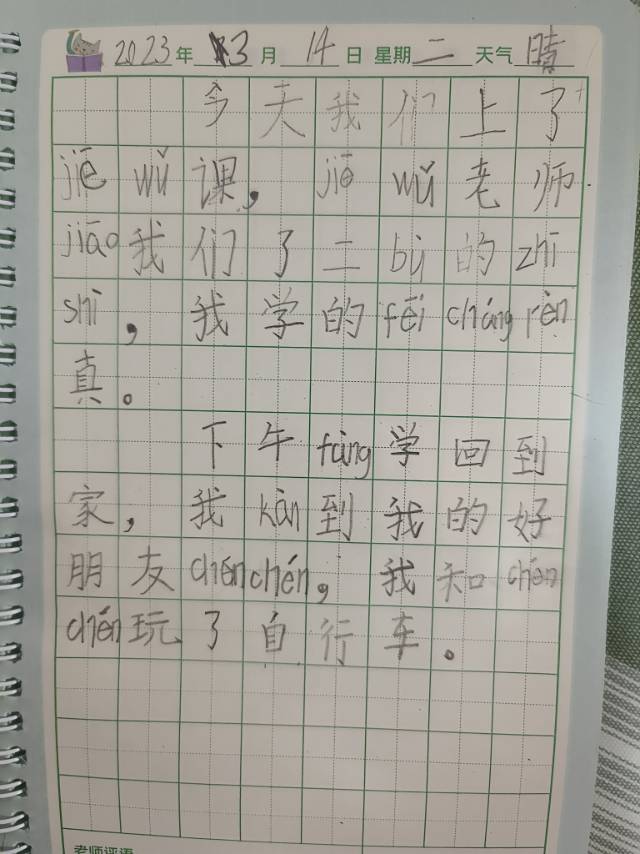 2023年3月14日 星期二 天气晴
今天我们上了
jiē wǔ课，jiē wǔ老师
jiāo我们了二bù的zhī
shī，我学的fēi cháng rèn
真。
下午fàng学回到
家，我kàn到我的好
朋友chénchén，我知chén
chén玩了自行车。
老师评语